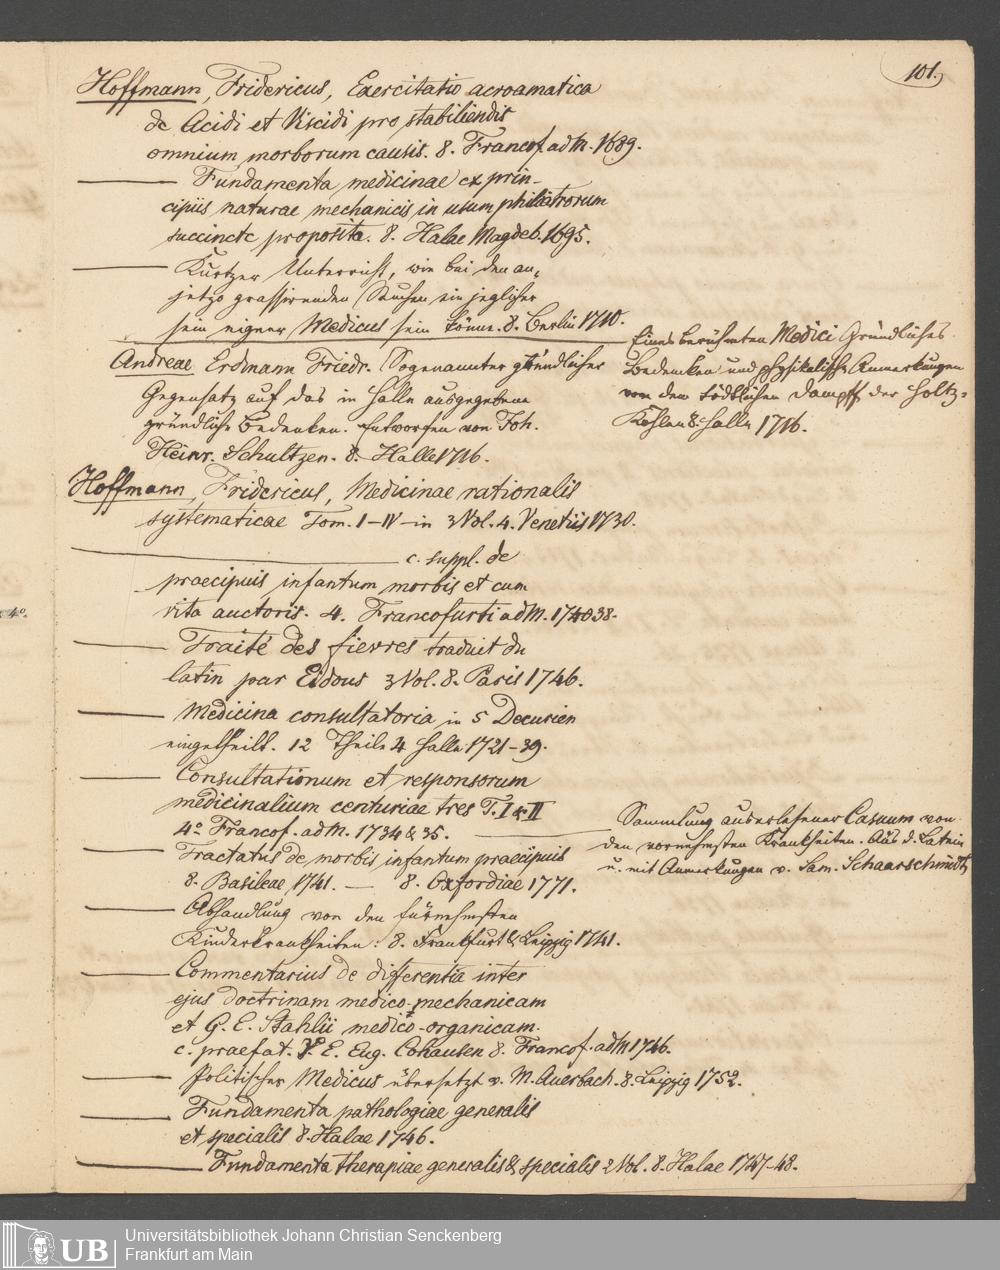 101.
Hoffmann, Fridericus, Exercitatio acroamatica
de Acidi et Viscidi pro stabiliendis
omnium morborum causis. 8. Francof. ad M. 1689.
Fundamenta medicinae ex prin-
cipiis naturae mechanicis in usum philiatrorum
succincte proposita. 8. Halae Magdeb. 1695.
Kurtzer Unterricht, wie bei den an,
jetzo grassirenden Seuchen ein jeglicher
sein eigner Medicus sein könne. 8. Berlin 1710.
Eines berühmten Medici Gründliches
Bedenken und physikalische Anmerkungen
von dem tödtlichen Dampff der Holtz-
Kohlen 8. Halle 1716.
Andreae Erdmann Friedr. Sogenannter gründlicher
Gegensatz auf das in Halle ausgegebene
gründliche Bedenken. Entworfen von Joh.
Heinr. Schultzen. 8. Halle 1716.
Hoffmann, Fridericus, Medicinae rationalis
systematicae Tom. I-IV in 3 Vol. 4. Venetiis 1730.
c. suppl. de
praecipuis infantum morbis et cum
vita auctoris. 4. Francofurti ad M. 1738.
4º.
Traité des fievres traduit du
latin par Eidous 3 Vol. 8. Paris 1746.
Medicina consultatoria in 5 Decurien
eingetheilt. 12 Theile 4 Halle 1721-39.
Consultationum et responsorum
medicinalium centuriae tres T. I & II
4º Francof. ad M. 1734 & 35.
Sammlung auserlesener Casuum von
den vornehmsten Krankheiten. Aus d. Latein
u. mit Anmerkungen v. Sam. Schaarschmidt
Tractatus de morbis infantum praecipuis
8. Basileae 1741. — 8. Oxfordiae 1771.
Abhandlung von den fürnehmsten
Kinderkrankheiten: 8. Frankfurt & Leipzig 1741.
Commentarius de differentia inter
ejus doctrinam medico-mechanicam
et G. E. Stahlii medico-organicam.
c. praefat. E. Eug. Cohausen 8. Francof. ad M 1746.
Politischer Medicus übersetzt v. M. Auerbach. 8. Leipzig 1752.
Fundamenta pathologiae generalis
et specialis 8. Halae 1746.
Fundamenta therapiae generalis & specialis 2 Vol. 8. Halae 1747-48.
UB
Universitätsbibliothek Johann Christian Senckenberg
Frankfurt am Main